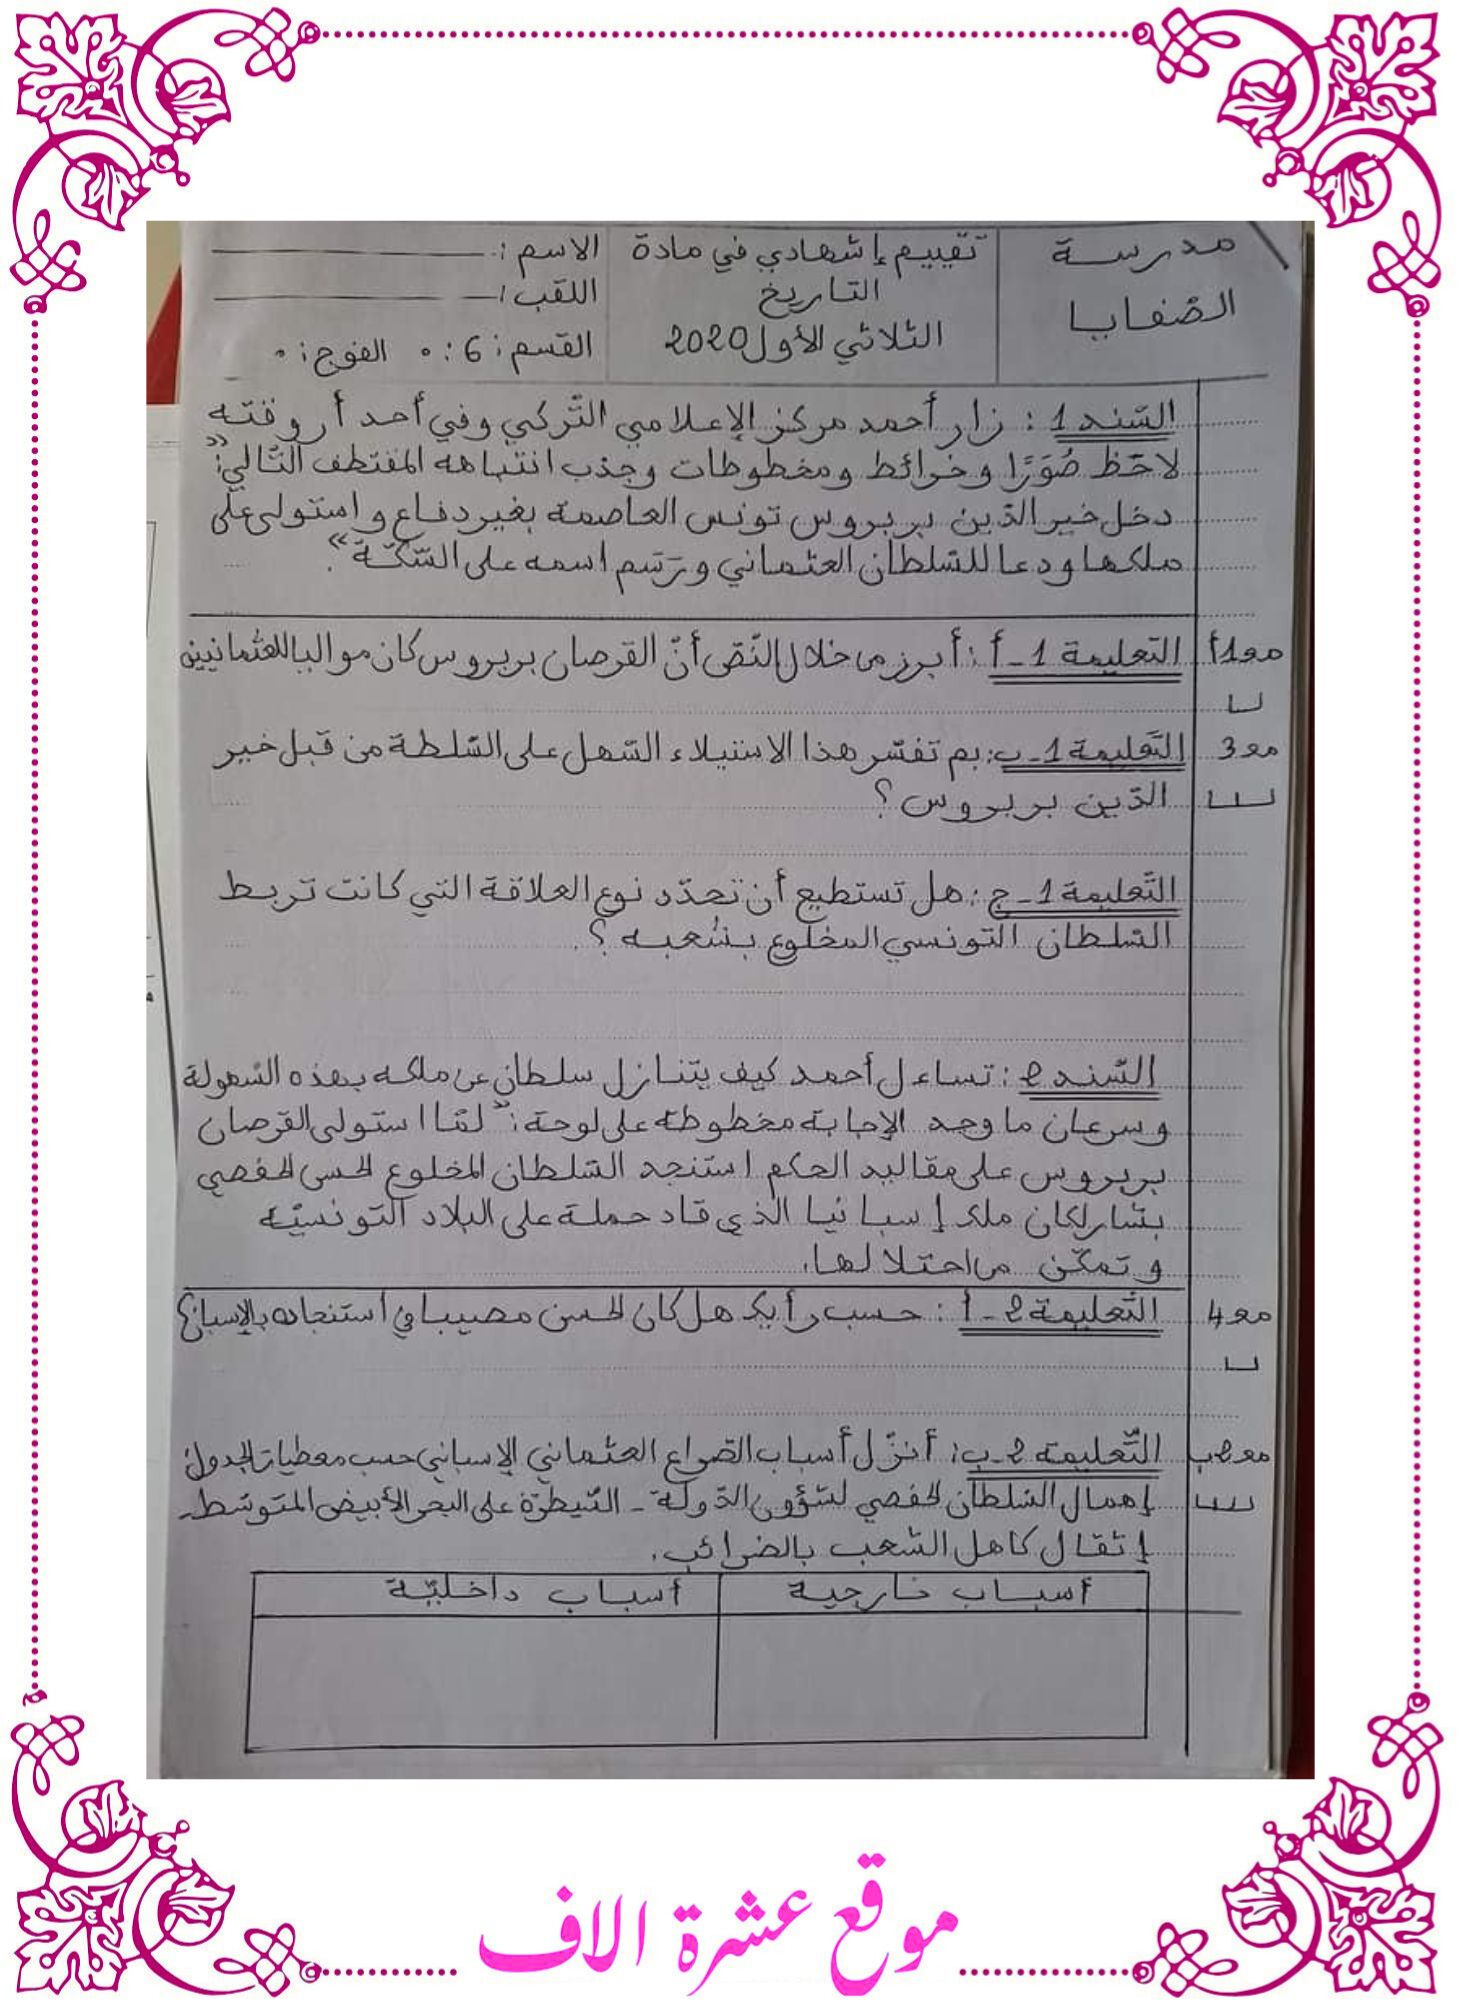 مدرسة
الصّفايا
تقييم إشهادي في مادة
التاريخ
الثلاثي الأول 2020
الاسم:
اللقب:
القسم: 6: الفوج:
السّند 1: زار أحمد مركز الإعلامي التّركي وفي أحد أروقته
لاحَظ صُوَرًا وخرائط ومخطوطات وجذب انتباهه المقتطف التّالي: "
دخل خير الدّين بربروس تونس العاصمة بغير دفاع واستولى على
ملكها ودعا للسّلطان العثماني ورَسَم اسمه على السّكّة".
مع1أ
التعليمة 1-أ: أبرز من خلال النّصّ أنّ القرصان بربروس كان مواليا للعثمانيين
مع3
التّعليمة 1-ب: بم تفسّر هذا الاستيلاء السّهل على السّلطة من قبل خير
الدّين بربروس؟
التّعليمة 1-ج: هل تستطيع أن تحدّد نوع العلاقة التي كانت تربط
السّلطان التونسي المخلوع بشعبه؟
السّند 2: تساءل أحمد كيف يتنازل سلطان عن ملكه بهذه السّهولة
وسرعان ما وجد الإجابة مخطوطة على لوحة: "لمّا استولى القرصان
بربروس على مقاليد الحكم استنجد السّلطان المخلوع الحسن الحفصي
بشارلكان ملك إسبانيا الذي قاد حملة على البلاد التونسيّة
وتمكّن من احتلالها.
مع4
التّعليمة 2-أ: حسب رأيك هل كان الحسن مصيبا في استنجاده بالإسبان؟
مع2ب
التّعليمة 2-ب: أنزّل أسباب الصّراع العثماني الإسباني حسب معطيات الجدول:
إهمال السّلطان الحفصي لشؤون الدّولة - السّيطرة على البحر الأبيض المتوسّط-
إثقال كاهل الشّعب بالضرائب.
أسباب خارجية
أسباب داخليّة
موقع عشرة الاف